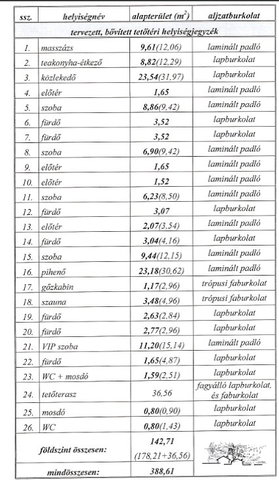 ssz. helyiségnév alapterület (m²) aljzatburkolat
tervezett, bővített tetőtéri helyiségjegyzék
1. masszázs 9,61(12,06) laminált padló
2. teakonyha-étkező 8,82(12,29) lapburkolat
3. közlekedő 23,54(31,97) lapburkolat
4. előtér 1,65 laminált padló
5. szoba 8,86(9,42) laminált padló
6. fürdő 3,52 lapburkolat
7. fürdő 3,52 lapburkolat
8. szoba 6,90(9,42) laminált padló
9. előtér 1,65 laminált padló
10. előtér 1,52 laminált padló
11. szoba 6,23(8,50) laminált padló
12. fürdő 3,07 lapburkolat
13. előtér 2,07(3,54) laminált padló
14. fürdő 3,04(4,16) lapburkolat
15. szoba 9,44(12,15) laminált padló
16. pihenő 23,18(30,62) laminált padló
17. gőzkabin 1,17(2,96) trópusi faburkolat
18. szauna 3,48(4,96) trópusi faburkolat
19. fürdő 2,63(2,84) lapburkolat
20. fürdő 2,77(2,96) lapburkolat
21. VIP szoba 11,20(15,14) laminált padló
22. fürdő 1,65(4,87) lapburkolat
23. WC + mosdó 1,59(2,51) lapburkolat
24. tetőterasz 36,56 fagyálló lapburkolat,
és faburkolat
25. mosdó 0,80(0,90) lapburkolat
26. WC 0,80(1,43) lapburkolat
földszint összesen: 142,71
(178,21+36,56)
mindösszesen: 388,61